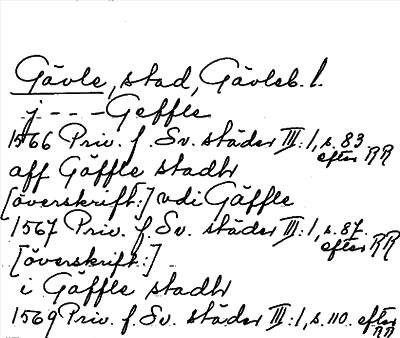 Gävle, stad, Gävleb. l.
j - - - Geffle
1566 Priv. f. Sv. städer III:1, s. 83
efter RR
aff Gäffle stadh
[överskrift:] vdi Gäffle
1567 Priv. f. Sv. städer III:1, s. 87.
efter RR
[överskrift:]
i Gäffle stadh
1569 Priv. f. Sv. städer III:1, s. 110. efter
RR